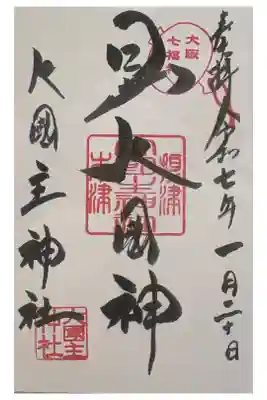 奉拝 令和七年一月二十日
大阪
七福
日出大国神
木津
大國主神社
大國主
神社